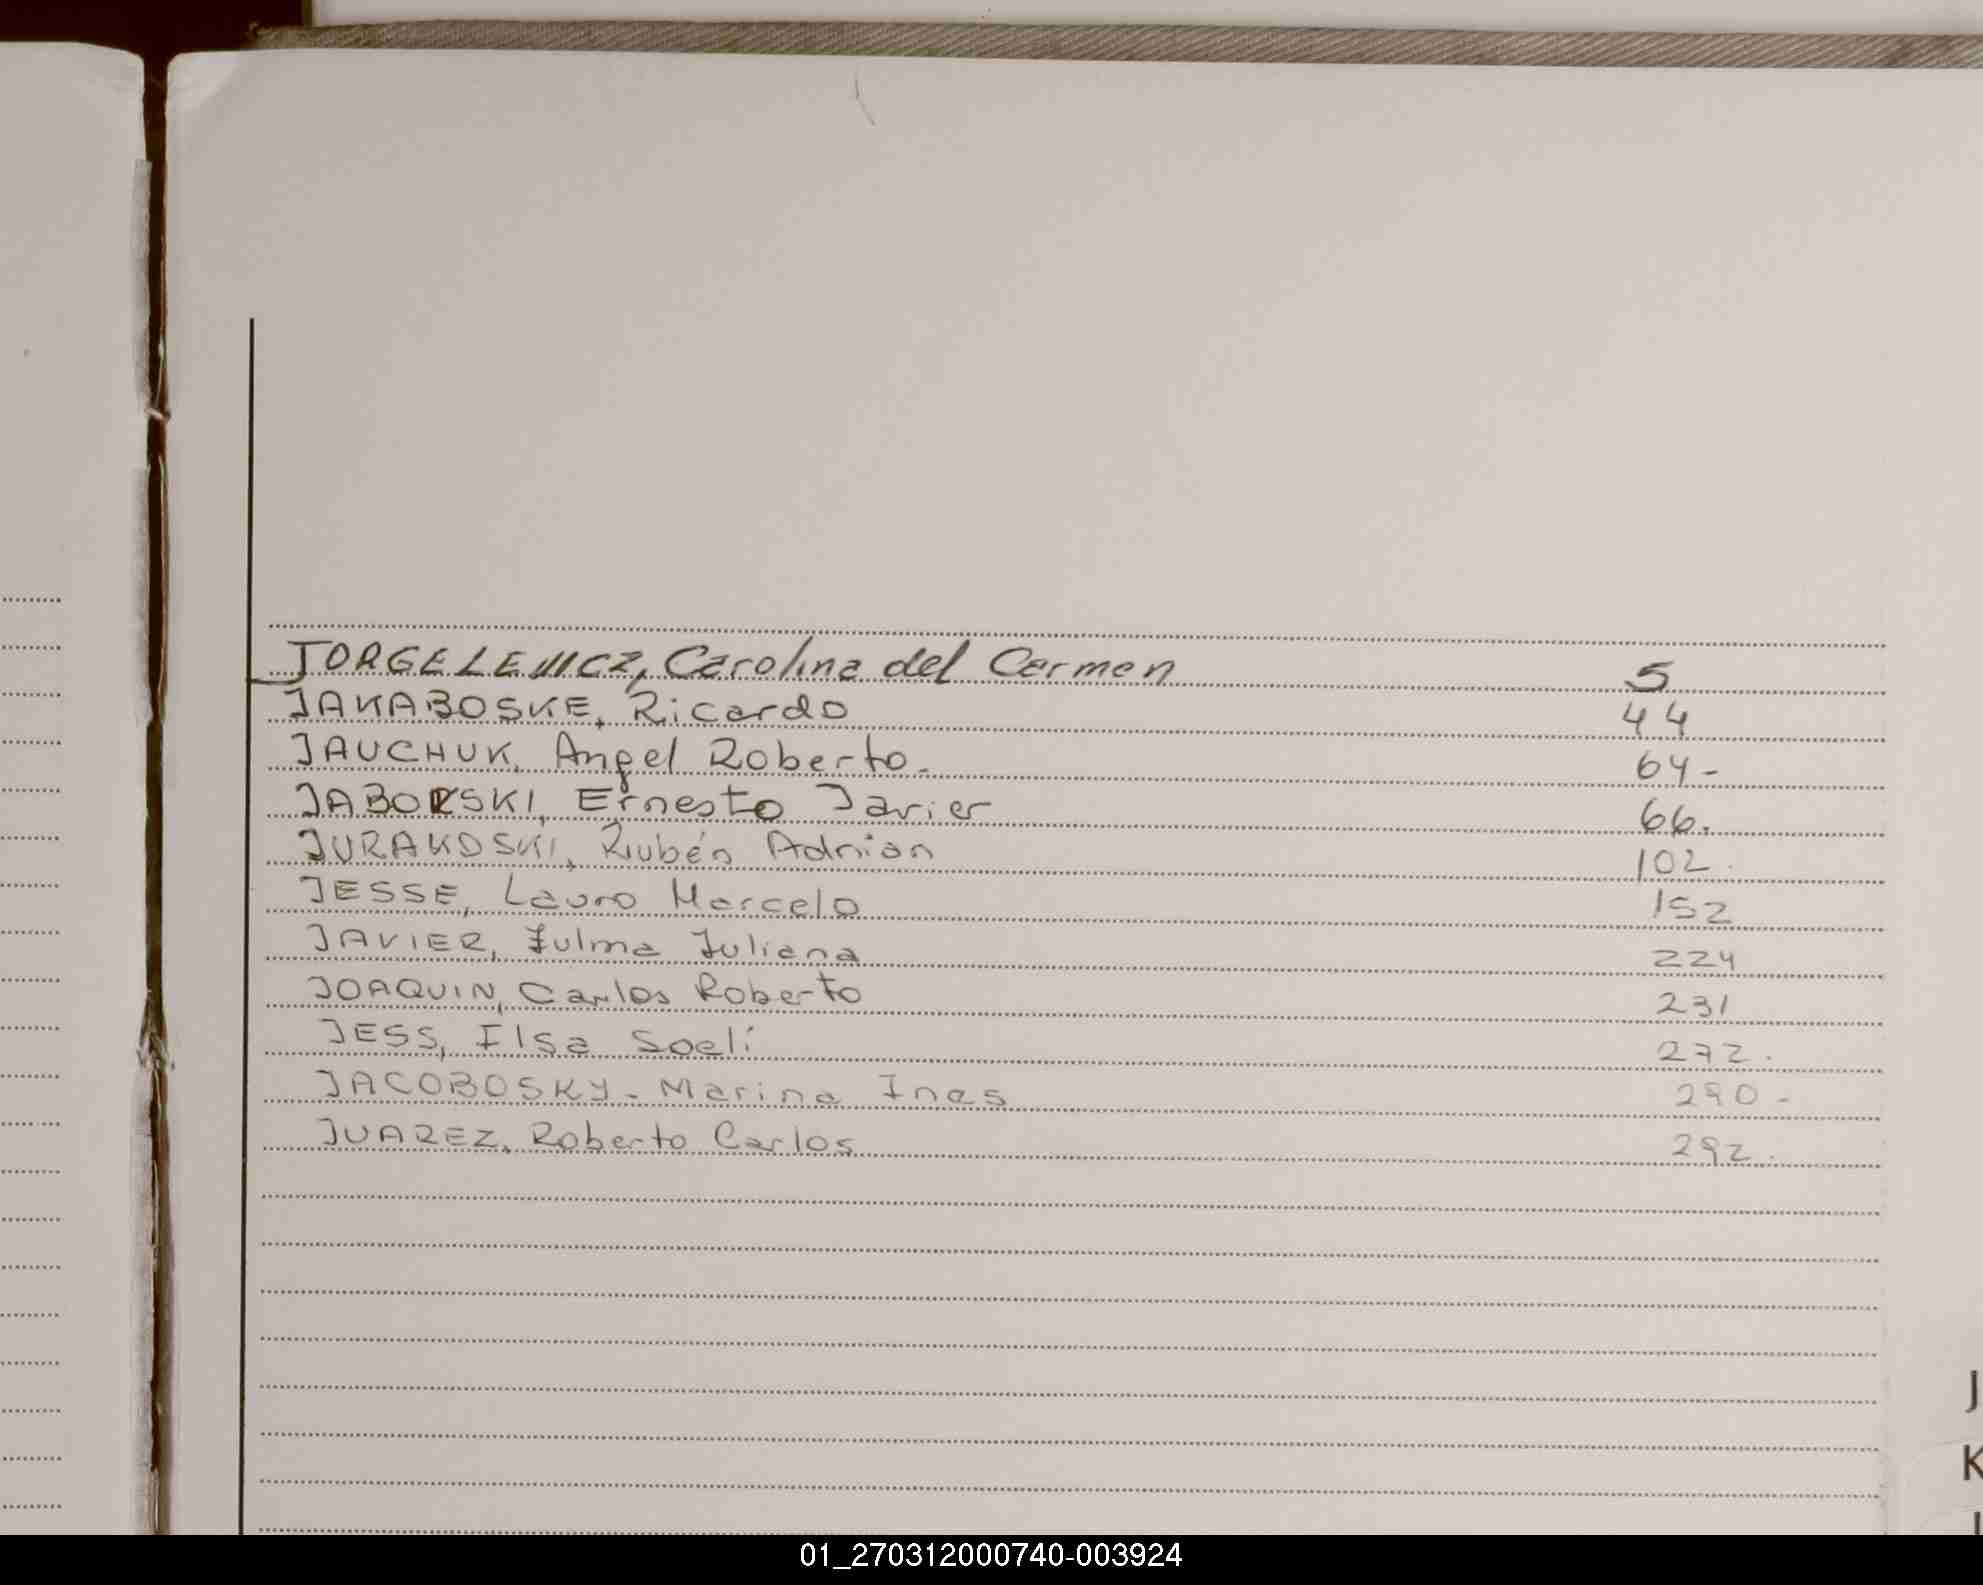 JORGELEWICZ, Carolina del Carmen 5
JAKABOSKE, Ricardo 44
JAUCHUK, Angel Roberto. 64-
JABORSKI, Ernesto Javier 66.
JURAKOSKI, Rubén Adrian 102.
JESSE, Lauro Marcelo 152
JAVIER, Zulma Juliana 224
JOAQUIN, Carlos Roberto 231
JESS, Ilsa Soeli 272.
JACOBOSKY- Marina Ines 290-
JUAREZ, Roberto Carlos 292.
J
K
01_270312000740-003924